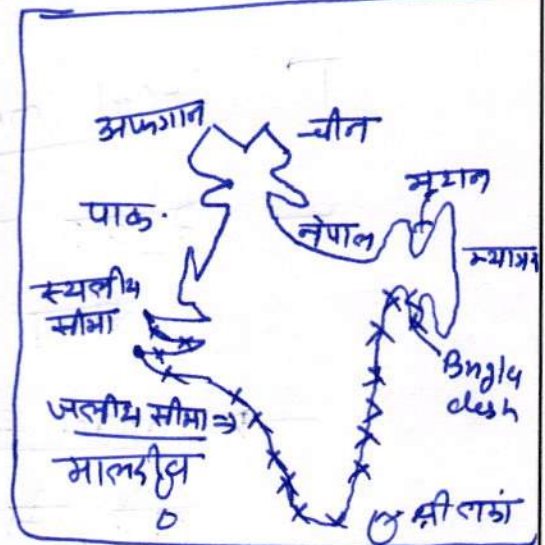 अफगान
चीन
भूटान
पाक.
नेपाल
म्यामार
स्थलीय
सीमा
Bngla
desh
जलीय सीमा ⇒
मालद्वीव
श्री लंका